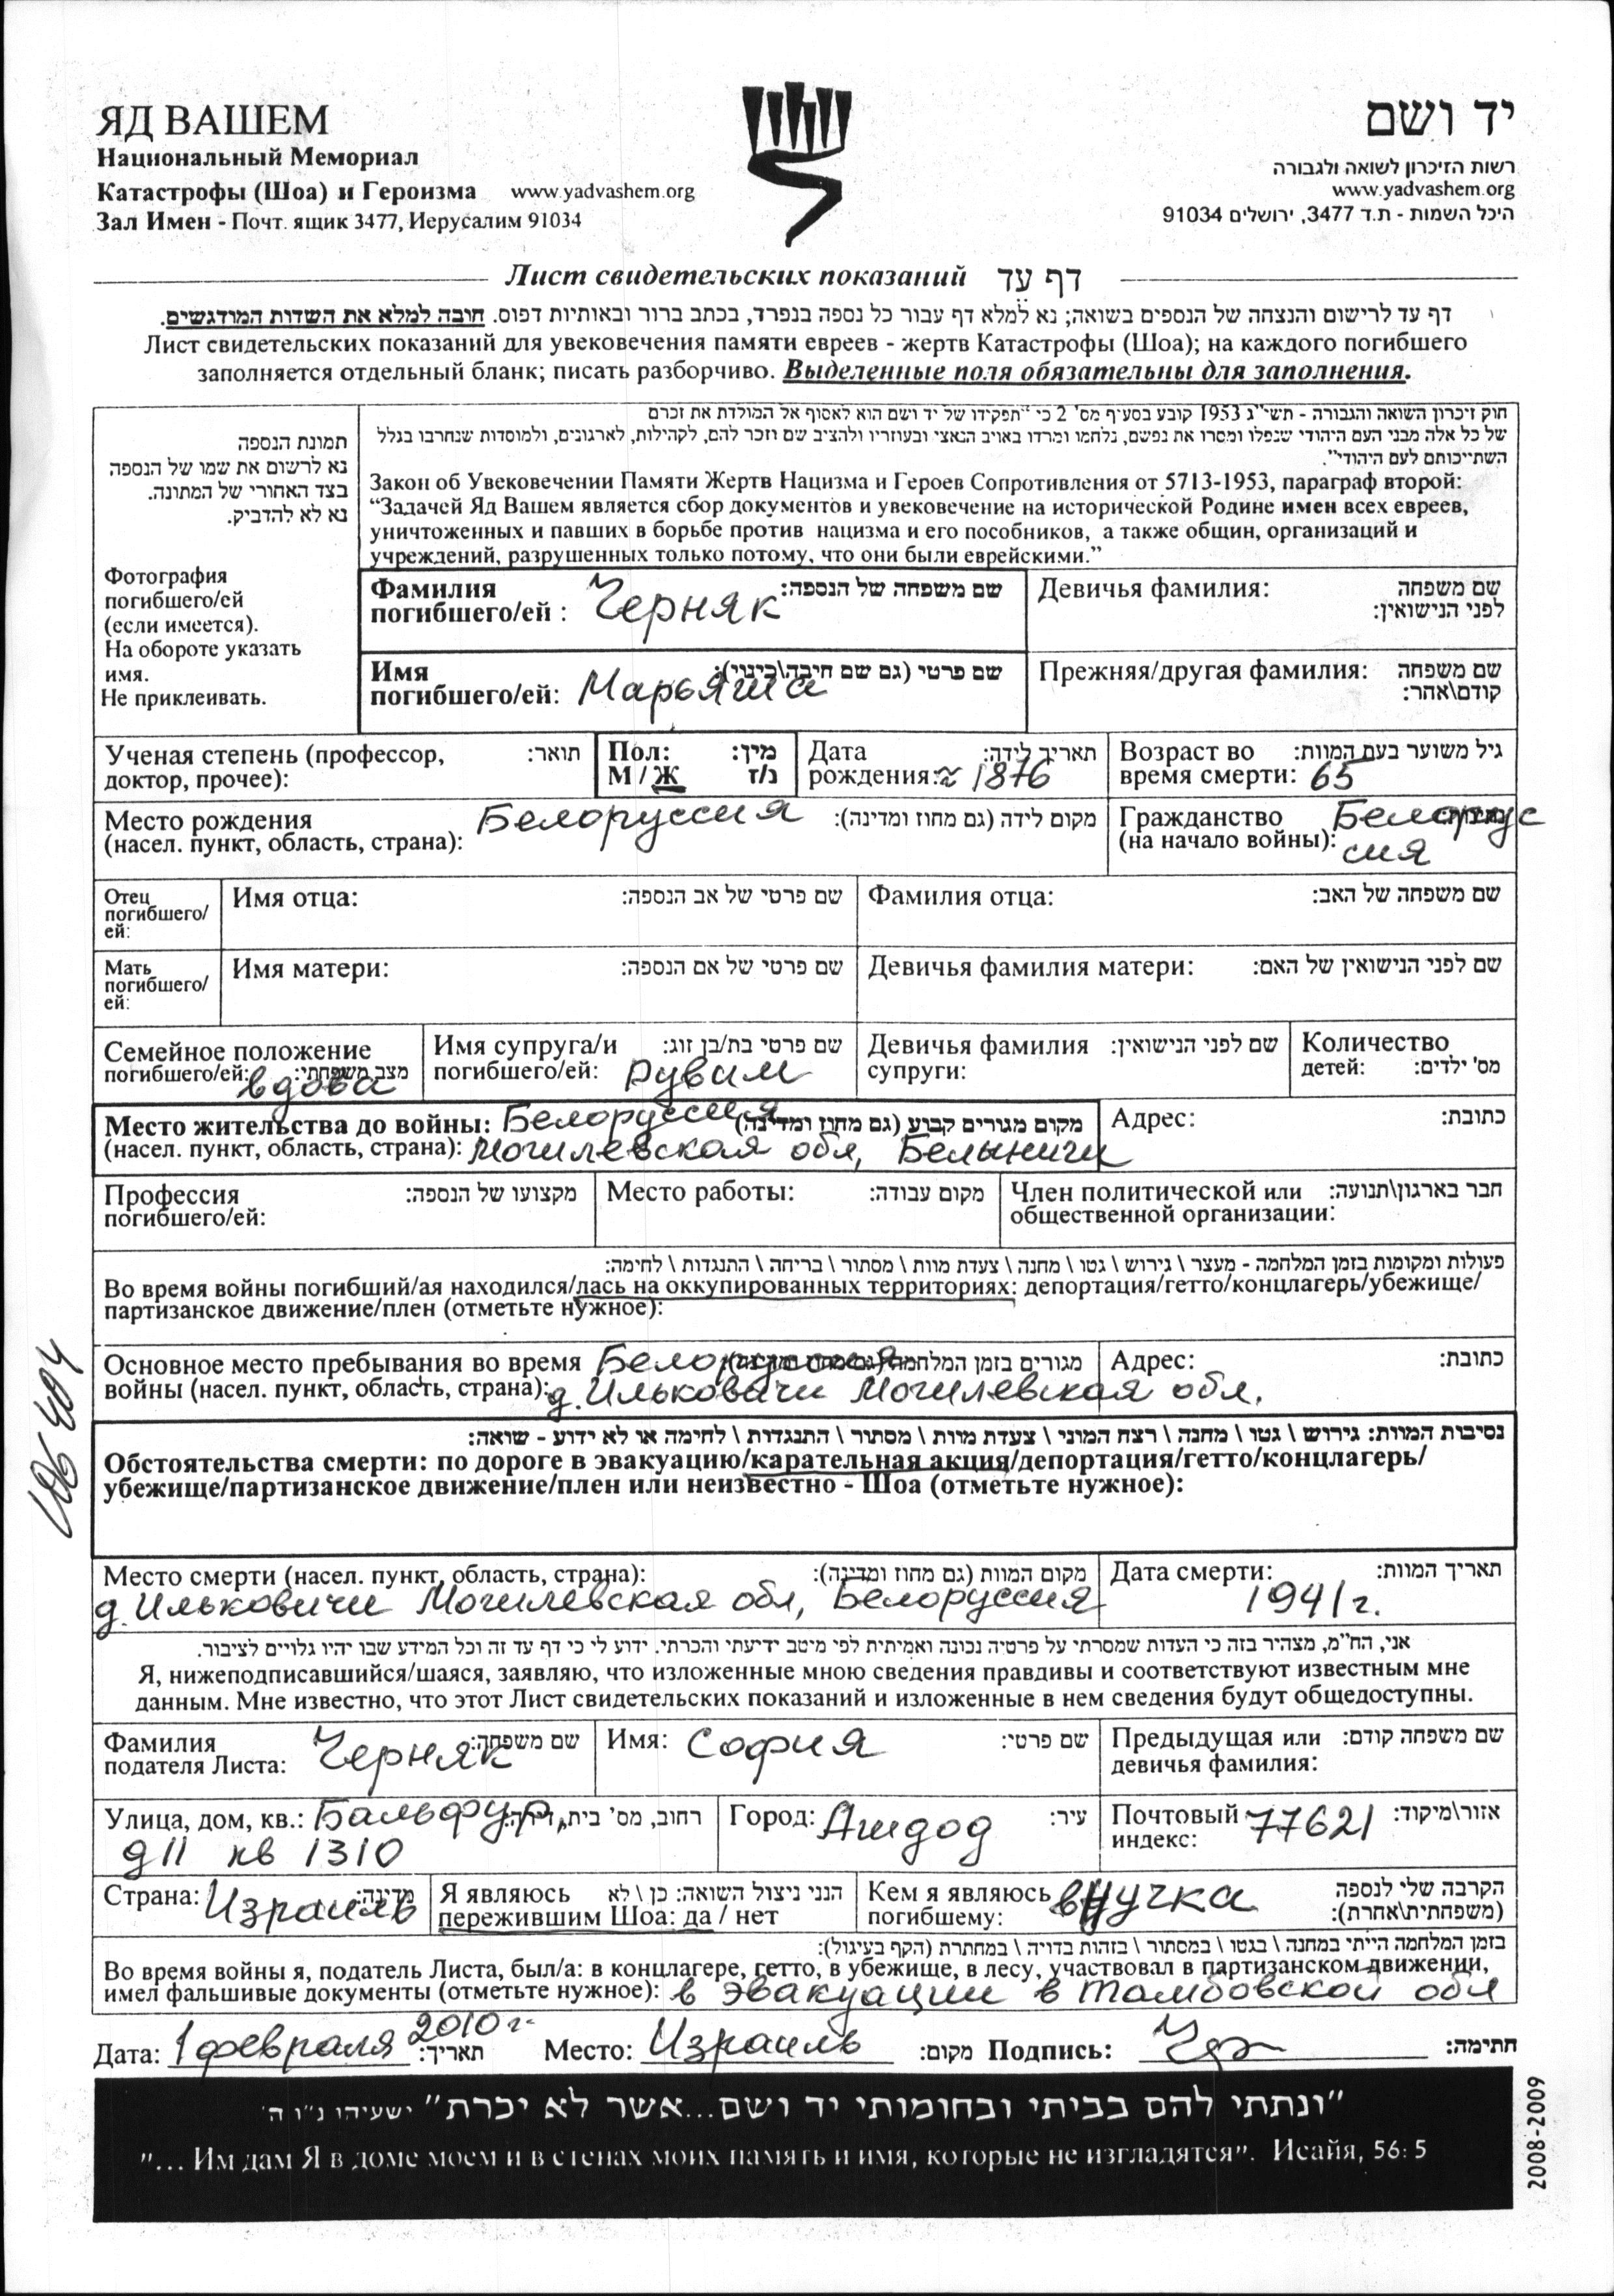 ЯД ВАШЕМ
יד ושם
Национальный Мемориал
Катастрофы (Шоа) и Героизма www.yadvashem.org
Зал Имен - Почт. ящик 3477, Иерусалим 91034
רשות הזיכרון לשואה ולגבורה
www.yadvashem.org
היכל השמות - ת.ד 3477, ירושלים 91034
Лист свидетельских показаний דף עד
דף עד לרישום והנצחה של הנספים בשואה; נא למלא דף עבור כל נספה בנפרד, בכתב ברור ובאותיות דפוס. חובה למלא את השדות המודגשים.
Лист свидетельских показаний для увековечения памяти евреев - жертв Катастрофы (Шоа); на каждого погибшего
заполняется отдельный бланк; писать разборчиво. Выделенные поля обязательны для заполнения.
תמונת הנספה
נא לרשום את שמו של הנספה
בצד האחורי של המתונה.
נא לא להדביק.
Фотография
погибшего/ей
(если имеется).
На обороте указать
имя.
Не приклеивать.
חוק זיכרון השואה והגבורה - תשי"ג 1953 קובע בסעיף מס' 2 כי "תפקידו של יד ושם הוא לאסוף אל המולדת את זכרם
של כל אלה מבני העם היהודי שנפלו ומסרו את נפשם, נלחמו ומרדו באויב הנאצי ובעוזריו ולהציב שם וזכר להם, לקהילות, לארגונים, ולמוסדות שנחרבו בגלל
השתייכותם לעם היהודי".
Закон об Увековечении Памяти Жертв Нацизма и Героев Сопротивления от 5713-1953, параграф второй:
“Задачей Яд Вашем является сбор документов и увековечение на исторической Родине имен всех евреев,
уничтоженных и павших в борьбе против нацизма и его пособников, а также общин, организаций и
учреждений, разрушенных только потому, что они были еврейскими.”
Фамилия погибшего/ей : Черняк שם משפחה של הנספה:
Девичья фамилия: שם משפחה לפני הנישואין:
Имя погибшего/ей: Марьяша שם פרטי (גם שם חיבה\כינוי):
Прежняя/другая фамилия: שם משפחה קודם\אחר:
Ученая степень (профессор, доктор, прочее): תואר:
Пол: М / Ж מין: ז/נ
Дата рождения: ≈ 1876 תאריך לידה:
Возраст во время смерти: 65 גיל משוער בעת המוות:
Место рождения (насел. пункт, область, страна): Белоруссия מקום לידה (גם מחוז ומדינה):
Гражданство (на начало войны): Белорус
сия
Отец погибшего/ей:
Имя отца: שם פרטי של אב הנספה:
Фамилия отца: שם משפחה של האב:
Мать погибшего/ей:
Имя матери: שם פרטי של אם הנספה:
Девичья фамилия матери: שם לפני הנישואין של האם:
Семейное положение погибшего/ей: вдова מצב משפחתי:
Имя супруга/и погибшего/ей: Рувим שם פרטי בת/בן זוג:
Девичья фамилия супруги: שם לפני הנישואין:
Количество детей: מס' ילדים:
Место жительства до войны: Белоруссия מקום מגורים קבוע (גם מחוז ומדינה)
(насел. пункт, область, страна): Могилевская обл, Белыничи
Адрес: כתובת:
Профессия погибшего/ей: מקצועו של הנספה:
Место работы: מקום עבודה:
Член политической или общественной организации: חבר בארגון\תנועה:
פעולות ומקומות בזמן המלחמה - מעצר \ גירוש \ גטו \ מחנה \ צעדת מוות \ מסתור \ בריחה \ התנגדות \ לחימה:
Во время войны погибший/ая находился/лась на оккупированных территориях: депортация/гетто/концлагерь/убежище/
партизанское движение/плен (отметьте нужное):
Основное место пребывания во время Белоруссия מגורים בזמן המלחמה (גם מחוז ומדינה)
войны (насел. пункт, область, страна): д. Ильковичи Могилевская обл.
Адрес: כתובת:
נסיבות המוות: גירוש \ גטו \ מחנה \ רצח המוני \ צעדת מוות \ מסתור \ התנגדות \ לחימה או לא ידוע - שואה:
Обстоятельства смерти: по дороге в эвакуацию/карательная акция/депортация/гетто/концлагерь/
убежище/партизанское движение/плен или неизвестно - Шоа (отметьте нужное):
Место смерти (насел. пункт, область, страна): מקום המוות (גם מחוז ומדינה):
д. Ильковичи Могилевская обл, Белоруссия
Дата смерти: תאריך המוות:
1941 г.
אני, הח"מ, מצהיר בזה כי העדות שמסרתי על פרטיה נכונה ואמיתית לפי מיטב ידיעתי והכרתי. ידוע לי כי דף עד זה וכל המידע שבו יהיו גלויים לציבור.
Я, нижеподписавшийся/шаяся, заявляю, что изложенные мною сведения правдивы и соответствуют известным мне
данным. Мне известно, что этот Лист свидетельских показаний и изложенные в нем сведения будут общедоступны.
Фамилия подателя Листа: Черняк שם משפחה:
Имя: София שם פרטי:
Предыдущая или девичья фамилия: שם משפחה קודם:
Улица, дом, кв.: Бальфур, רחוב, מס' בית, דירה:
д 11 кв 1310
Город: Ашдод עיר:
Почтовый индекс: 77621 אזור\מיקוד:
Страна: Израиль מדינה:
Я являюсь пережившим Шоа: да / нет הנני ניצול השואה: כן \ לא
Кем я являюсь погибшему: внучка הקרבה שלי לנספה (משפחתית\אחרת):
בזמן המלחמה הייתי במחנה \ בגטו \ במסתור \ בזהות בדויה \ במחתרת (הקף בעיגול):
Во время войны я, податель Листа, был/а: в концлагере, гетто, в убежище, в лесу, участвовал в партизанском движении,
имел фальшивые документы (отметьте нужное): в эвакуации в Тамбовской обл
Дата: 1 февраля 2010 г. תאריך: Место: Израиль מקום: Подпись: חתימה:
"ונתתי להם בביתי ובחומותי יד ושם...אשר לא יכרת" ישעיהו נ"ו ה'
"... Им дам Я в доме моем и в стенах моих память и имя, которые не изгладятся". Исайя, 56: 5
2008-2009